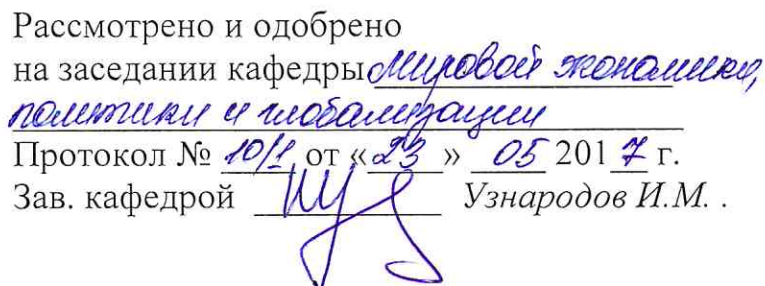 Рассмотрено и одобрено
на заседании кафедры Мировой экономики,
политики и глобализации
Протокол № 10/1 от «23» 05 2017 г.
Зав. кафедрой Узнародов И.М. .